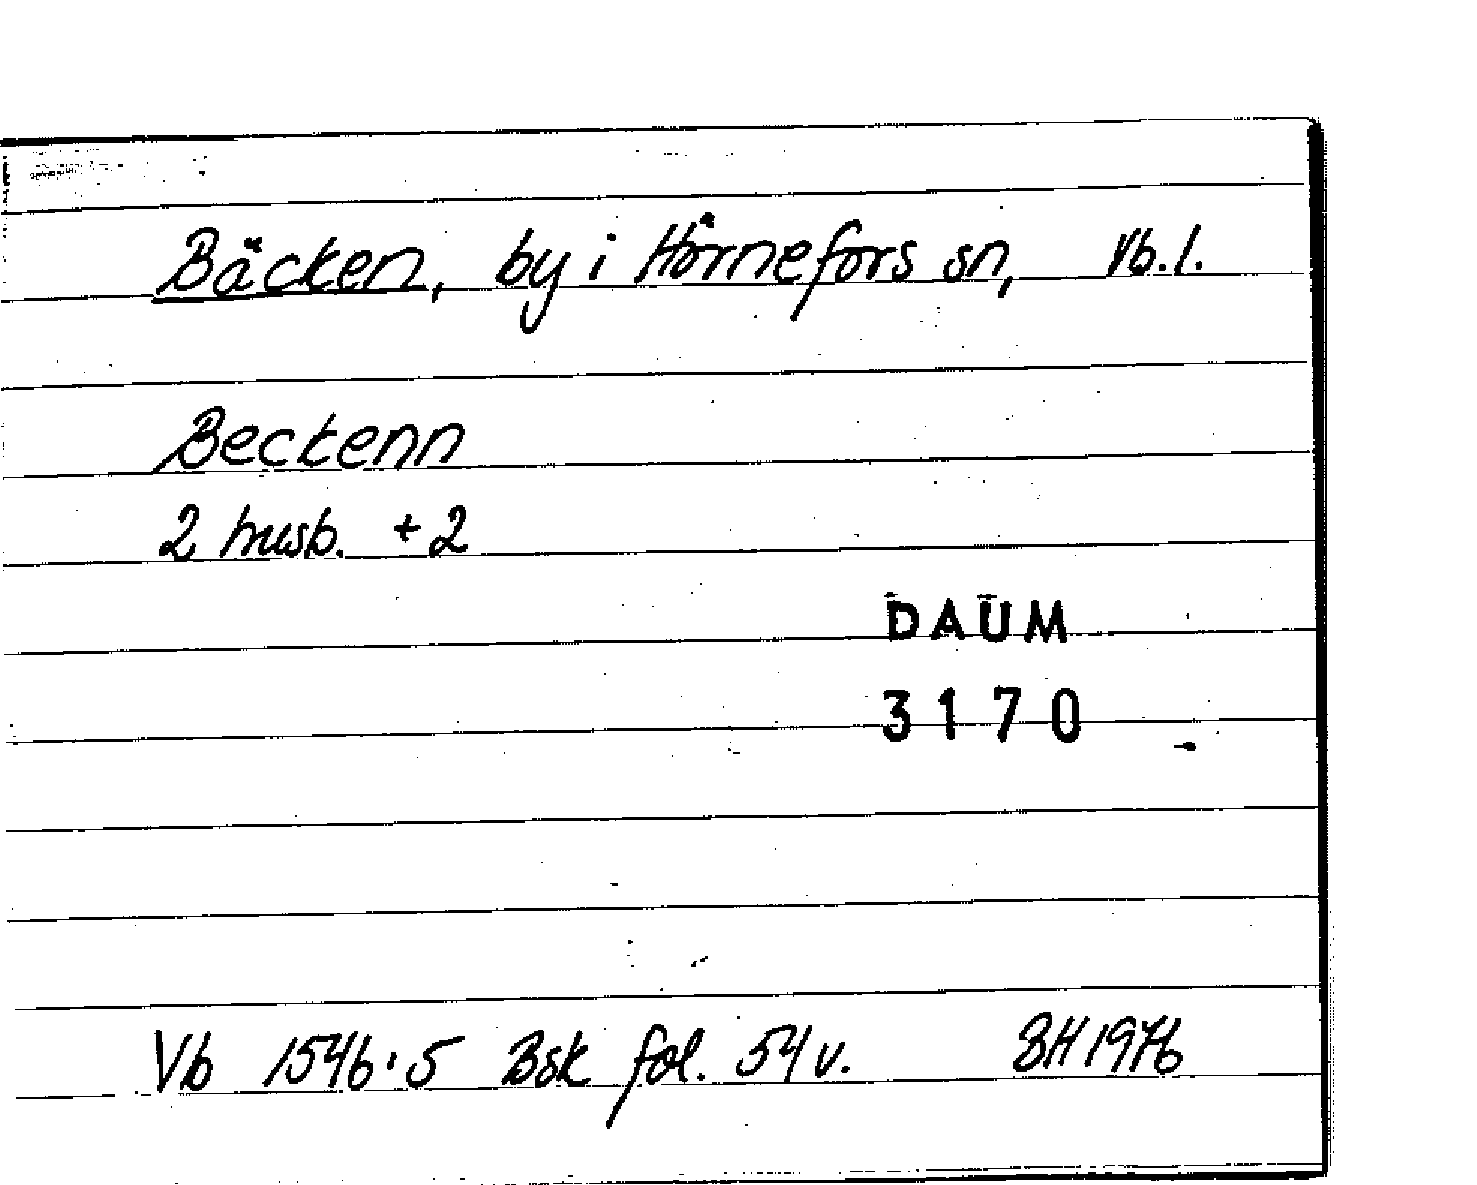 Bäcken, by i Hörnefors sn, Vb.l.
Beckenn
2 husb. + 2
DAUM
3170
Vb 1546:5 Bsk fol. 54 v. BH 1976